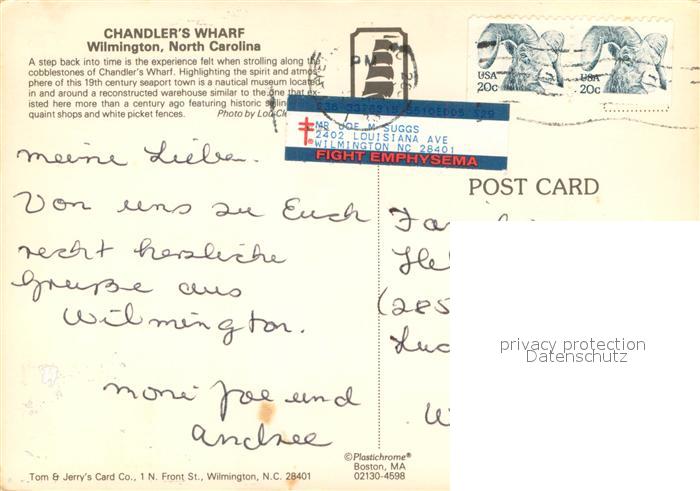 CHANDLER'S WHARF
Wilmington, North Carolina
A step back into time is the experience felt when strolling along the
cobblestones of Chandler's Wharf. Highlighting the spirit and atmos-
phere of this 19th century seaport town is a nautical museum located
in and around a reconstructed warehouse similar to the one that ex-
isted here more than a century ago featuring historic
quaint shops and white picket fences.
Photo by
PM
USA
20c
USA
20c
MR JOE M SUGGS
2402 LOUISIANA AVE
WILMINGTON NC 28401
FIGHT EMPHYSEMA
POST CARD
meine Lieben.
Von uns zu Euch
recht herzliche
Grüße aus
Wilmington.
Moni Joe und
Andree
(285
privacy protection
Datenschutz
©Plastichrome®
Boston, MA
02130-4598
Tom & Jerry's Card Co., 1 N. Front St., Wilmington, N.C. 28401